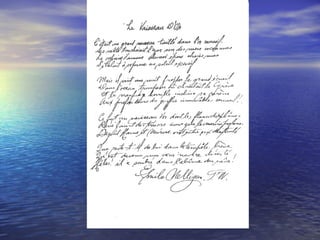 Le Vaisseau d'Or
Ce fut un grand vaisseau taillé dans l'or massif
Ses mâts touchaient l'azur sur des mers inconnues
cheveux épars, chairs nues
S'étalait à sa proue au soleil excessif
Mais il vint une nuit frapper le grand écueil
Dans l'océan trompeur où chantait la Sirène
Et le naufrage horrible inclina sa carène
Aux profondeurs du gouffre, immuable cercueil
Ce fut un vaisseau d'or dont les flancs diaphanes
que les marins profanes
Dégoût, Haine et Névrose
Que reste-t-il de lui dans la tempête brève
Qu'est devenu mon cœur, navire déserté
Hélas! il a sombré dans l'abîme du rêve!
Emile Nelligan